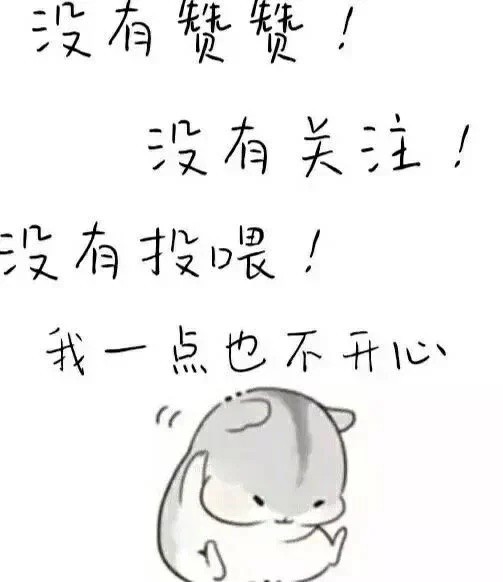 没有赞赞！
没有关注！
没有投喂！
我一点也不开心